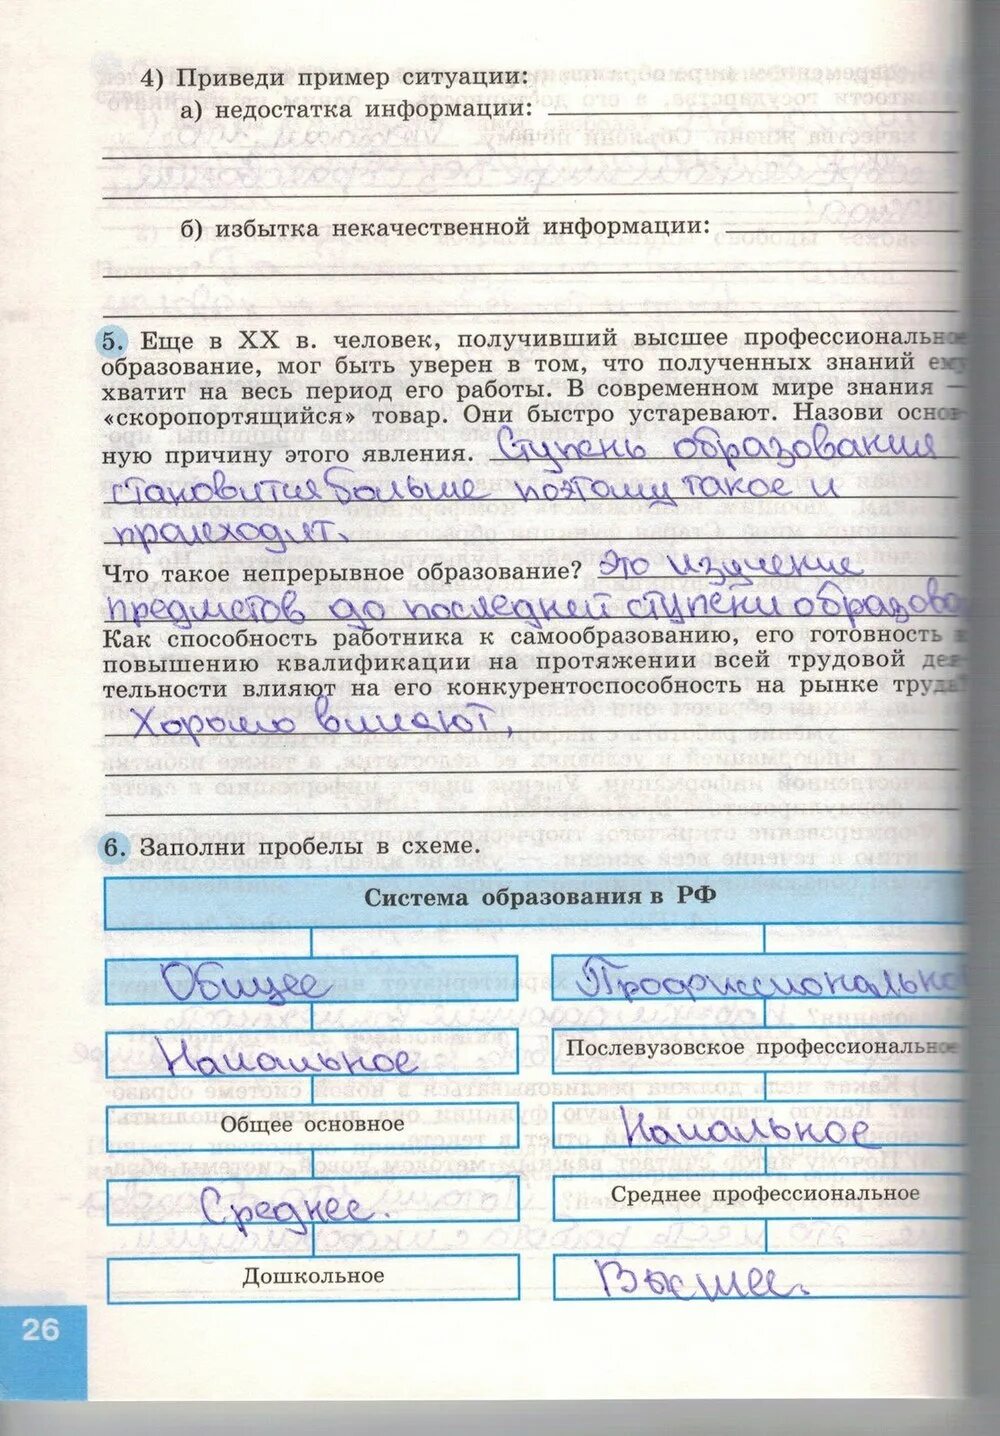 4) Приведи пример ситуации:
а) недостатка информации:
б) избытка некачественной информации:
5. Еще в XX в. человек, получивший высшее профессиональное
образование, мог быть уверен в том, что полученных знаний ему
хватит на весь период его работы. В современном мире знания —
«скоропортящийся» товар. Они быстро устаревают. Назови основ-
ную причину этого явления. Ступень образования
становится больше поэтому такое и
происходит.
Что такое непрерывное образование? Это изучение
предметов до последней ступени образова
Как способность работника к самообразованию, его готовность к
повышению квалификации на протяжении всей трудовой дея-
тельности влияют на его конкурентоспособность на рынке труда?
Хорошо влияют,
6. Заполни пробелы в схеме.
Система образования в РФ
Общее
Профессионально
Начальное
Послевузовское профессиональное
Общее основное
Начальное
Среднее.
Среднее профессиональное
Дошкольное
Высшее.
26